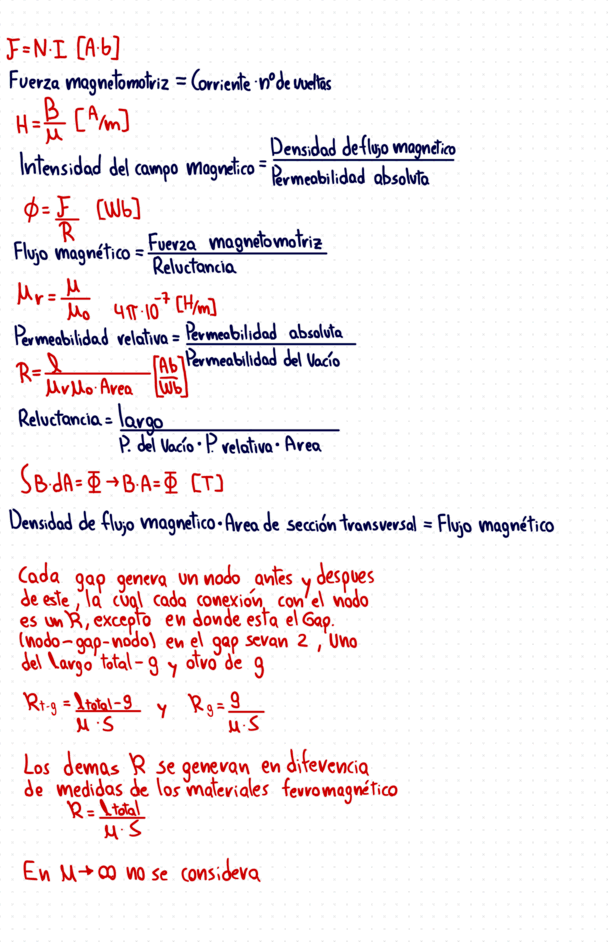 F=N·I [A·b]
Fuerza magnetomotriz = Corriente · nº de vueltas
H = B/μ [A/m]
Intensidad del campo magnetico = Densidad de flujo magnetico / Permeabilidad absoluta
φ = F/R [Wb]
Flujo magnético = Fuerza magnetomotriz / Reluctancia
μr = μ/μo 4π·10^-7 [H/m]
Permeabilidad relativa = Permeabilidad absoluta / Permeabilidad del Vacío
R = l / μrμo·Area [Ab/Wb]
Reluctancia = largo / P. del Vacío · P. relativa · Area
∫B·dA = Φ → B·A = Φ [T]
Densidad de flujo magnetico · Area de sección transversal = Flujo magnético
Cada gap genera un nodo antes y despues
de este, la cual cada conexión con el nodo
es un R, excepto en donde esta el Gap.
(nodo-gap-nodo) en el gap seran 2, Uno
del largo total-g y otro de g
Rt-g = ltotal-g / μ·S y Rg = g / μ·S
Los demas R se generan en diferencia
de medidas de los materiales ferromagnético
R = ltotal / μ·S
En μ→∞ no se considera